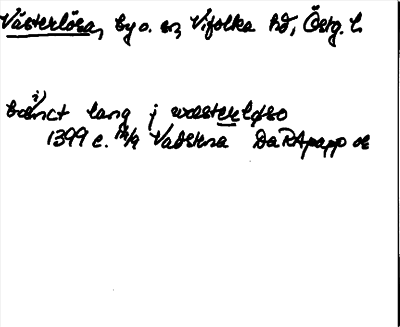 Västerlösa, by o. sn, Vifolka hd, Östg. l.
bænct lang j wæsterløso
1399 c. 12/9 Vadstena DaRApapp or